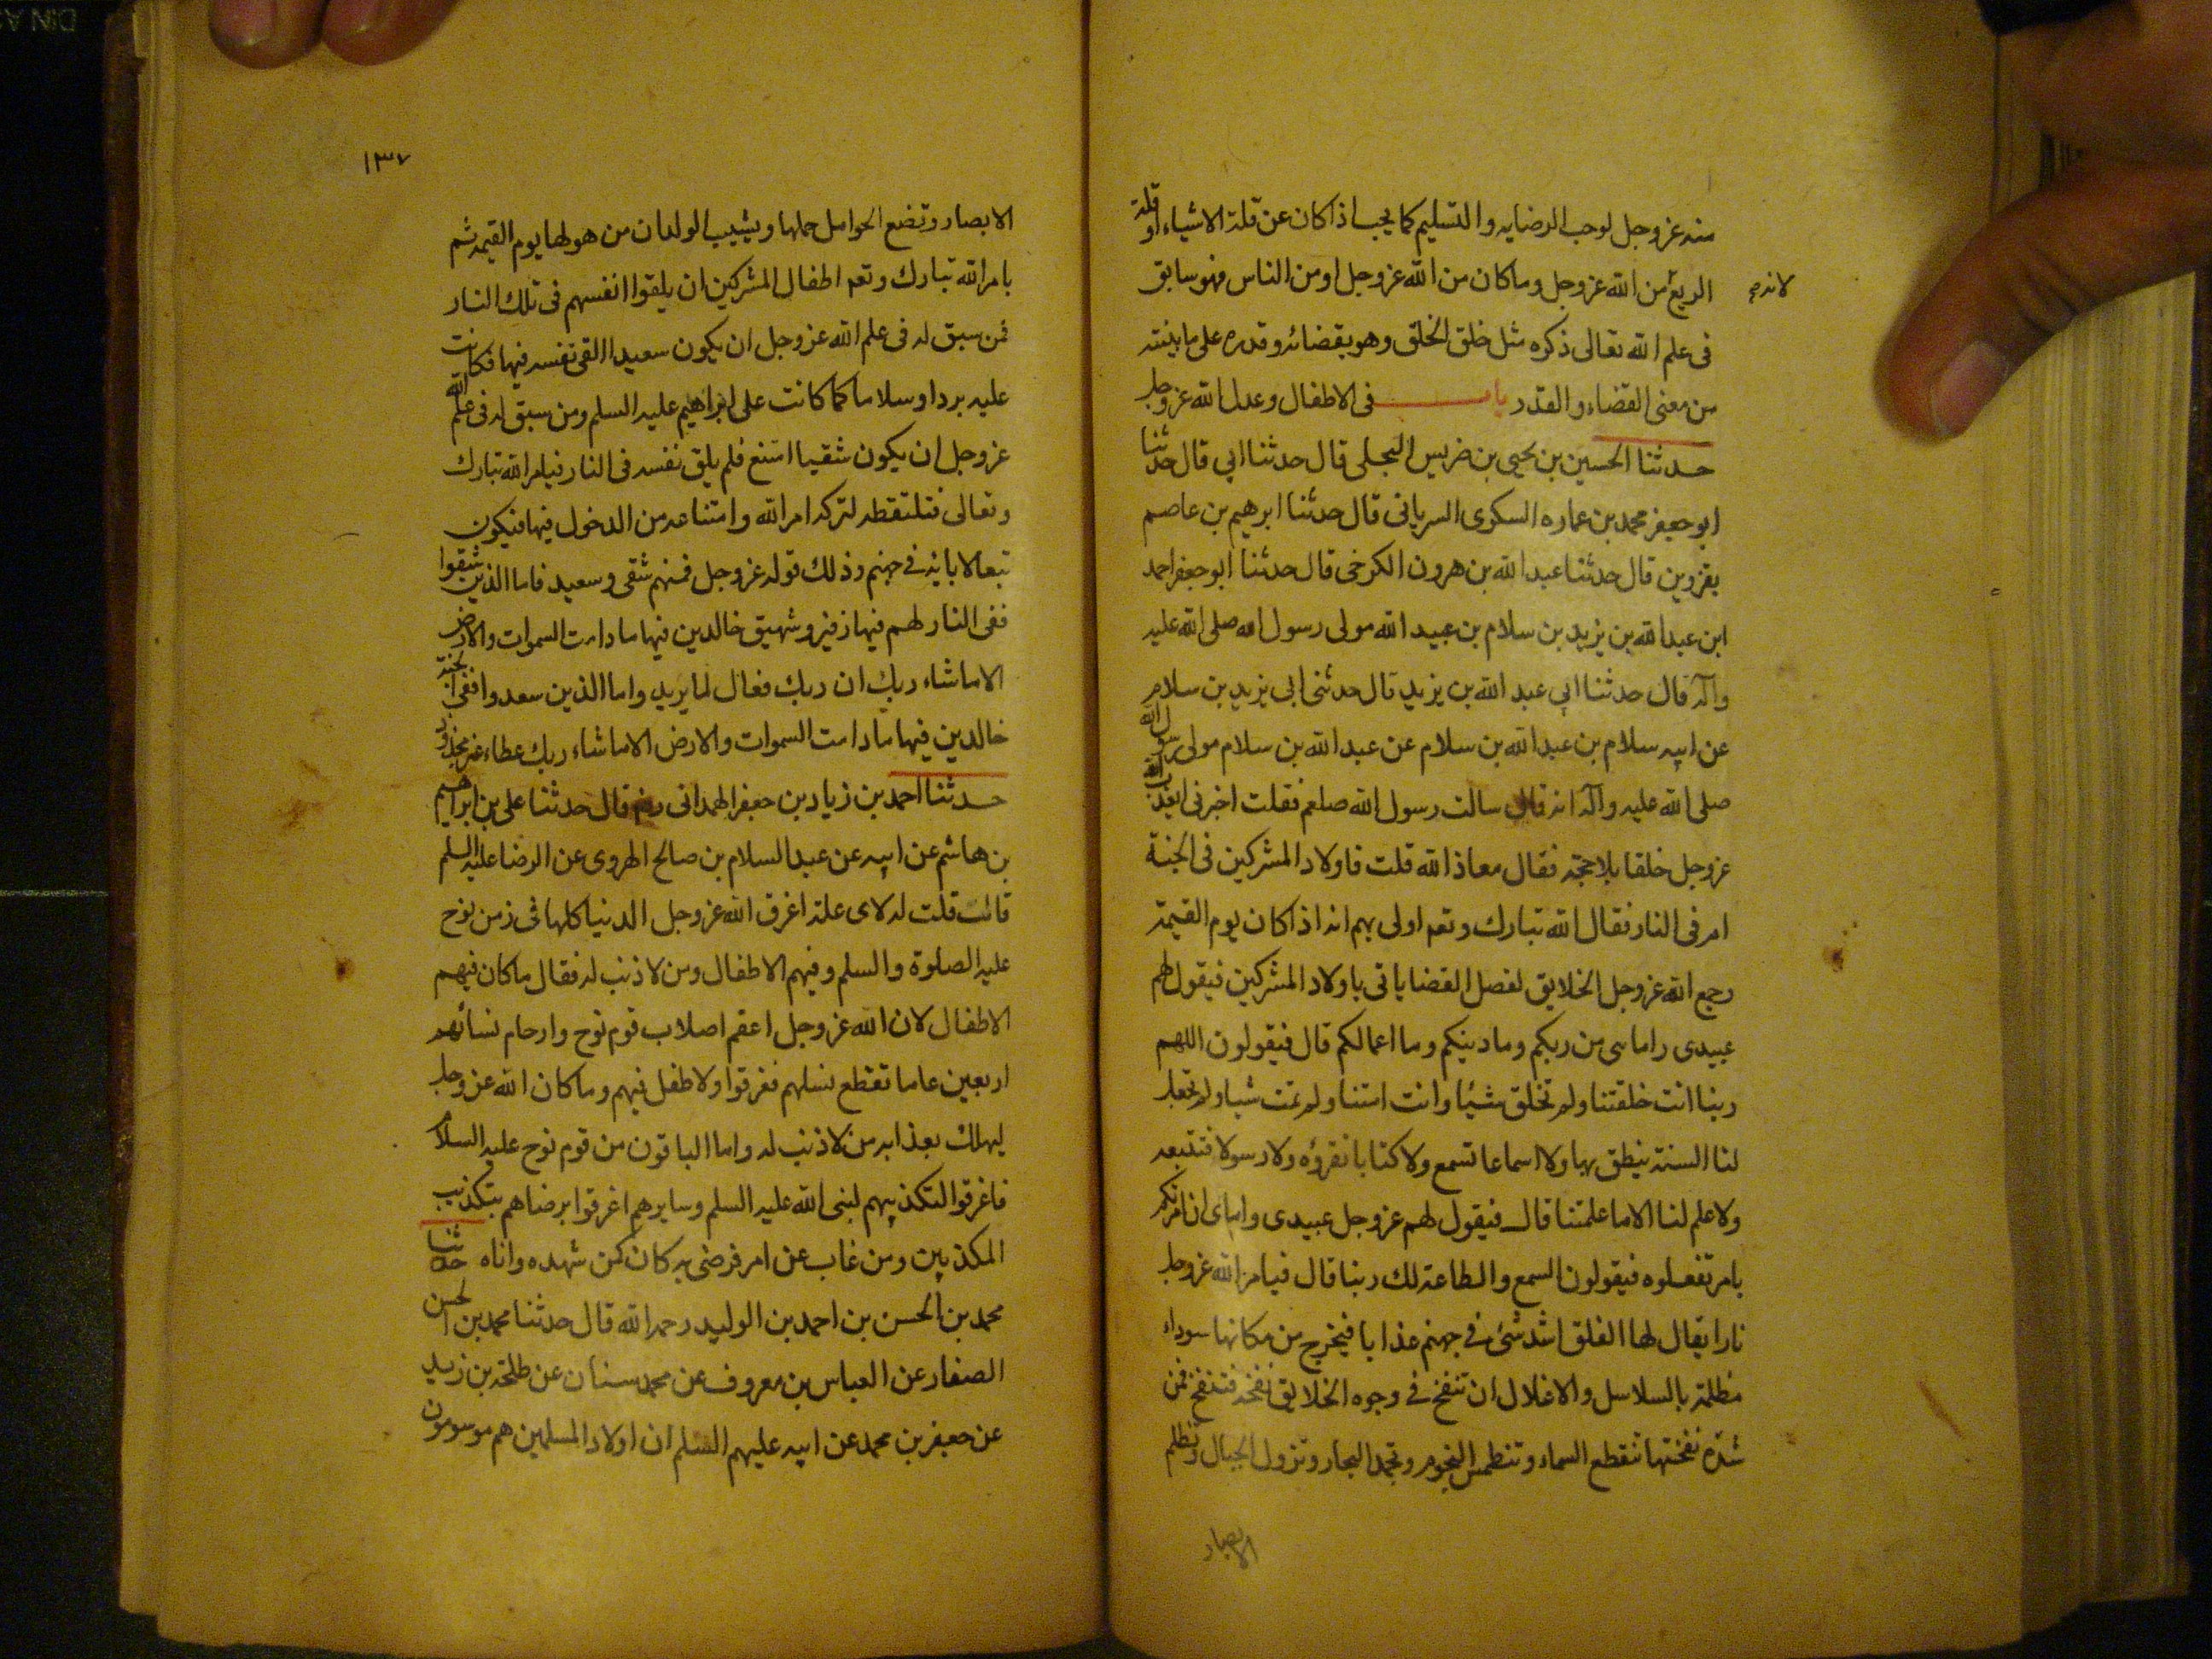 منه عز وجل لوجب الرضا به والتسليم كما يجب اذا كان عن قلة الاشياء او قلة
الريع من الله عز وجل وما كان من الله عز وجل او من الناس فهو سابق
لانه
فى علم الله تعالى ذكره مثل خلق الخلق وهو بقضائه وقدره على ما بينته
من معنى القضاء والقدر باب فى الاطفال وعدل الله عز وجل
حدثنا الحسين بن يحيى بن ضريس البجلى قال حدثنا ابى قال حدثنا
ابو جعفر محمد بن عماره السكرى السريانى قال حدثنا ابرهيم بن عاصم
بقزوين قال حدثنا عبد الله بن هرون الكرخى قال حدثنا ابو جعفر احمد
ابن عبد الله بن يزيد بن سلام بن عبيد الله مولى رسول الله صلى الله عليه
وآله قال حدثنا ابى عبد الله بن يزيد قال حدثنى ابى يزيد بن سلام
عن ابيه سلام بن عبد الله بن سلام عن عبد الله بن سلام مولى رسول الله
صلى الله عليه وآله انه قال سالت رسول الله صلعم فقلت اخبرنى ايعذب الله
عز وجل خلقا بلا حجة فقال معاذ الله قلت فاولاد المشركين فى الجنة
ام فى النار فقال الله تبارك وتعه اولى بهم انه اذا كان يوم القيمة
وجمع الله عز وجل الخلايق لفصل القضا ياتى باولاد المشركين فيقول لهم
عبيدى وامائى من ربكم وما دينكم وما اعمالكم قال فيقولون اللهم
ربنا انت خلقتنا ولم تخلق شيئا وانت امتنا ولم تمت شيا ولم تجعل
لنا السنة ينطق بها ولا اسماعا تسمع ولا كتابا نقرؤه ولا رسولا فنتبعه
ولا علم لنا الا ما علمتنا قال فيقول لهم عز وجل عبيدى وامائى ان امرتكم
بامر تفعلوه فيقولون السمع والطاعة لك ربنا قال فيامر الله عز وجل
نارا يقال لها الفلق اشد شئ فى جهنم عذابا فيخرج من مكانها سوداء
مظلمة بالسلاسل والاغلال ان تنفخ فى وجوه الخلايق نفخة فتنفخ فمن
شدة نفختها تنقطع السماء وتنطمس النجوم وتجمد البحار وتزول الجبال وتظلم
الابصار
١٣٧
الابصار وتضع الحوامل حملها ويشيب الولدان من هولها يوم القيمة ثم
يامر الله تبارك وتعه اطفال المشركين ان يلقوا انفسهم فى تلك النار
فمن سبق له فى علم الله عز وجل ان يكون سعيدا القى نفسه فيها فكانت
عليه بردا وسلاما كما كانت على ابراهيم عليه السلم ومن سبق له فى علم الله
عز وجل ان يكون شقيا امتنع فلم يلق نفسه فى النار فيامر الله تبارك
وتعالى فتلتقطه لتركه امر الله وامتناعه من الدخول فيها فيكون
تبعا لابائه فى جهنم وذلك قوله عز وجل فمنهم شقى وسعيد فاما الذين شقوا
ففى النار لهم فيها زفير وشهيق خالدين فيها ما دامت السموات والارض
الا ما شاء ربك ان ربك فعال لما يريد واما الذين سعدوا ففى الجنة
خالدين فيها ما دامت السموات والارض الا ما شاء ربك عطاء غير مجذوذ
حدثنا احمد بن زياد بن جعفر الهمدانى رضه قال حدثنا على بن ابراهيم
بن هاشم عن ابيه عن عبد السلام بن صالح الهروى عن الرضا عليه السلم
قالت قلت له لاى علة اغرق الله عز وجل الدنيا كلها فى زمن نوح
عليه الصلوة والسلم وفيهم الاطفال ومن لا ذنب له فقال ما كان فيهم
الاطفال لان الله عز وجل اعقم اصلاب قوم نوح وارحام نسائهم
اربعين عاما تقطع نسلهم فغرقوا ولا طفل فيهم وما كان الله عز وجل
ليهلك بعذابه من لا ذنب له واما الباقون من قوم نوح عليه السلام
فاغرقوا لتكذيبهم لنبى الله عليه السلم وسايرهم اغرقوا برضاهم بتكذيب
المكذبين ومن غاب عن امر فرضى به كان كمن شهده واتاه حدثنا
محمد بن الحسن بن احمد بن الوليد رحمه الله قال حدثنا محمد بن الحسن
الصفار عن العباس بن معروف عن محمد سنان عن طلحة بن زيد
عن جعفر بن محمد عن ابيه عليهم السلم ان اولاد المسلمين هم موسومون